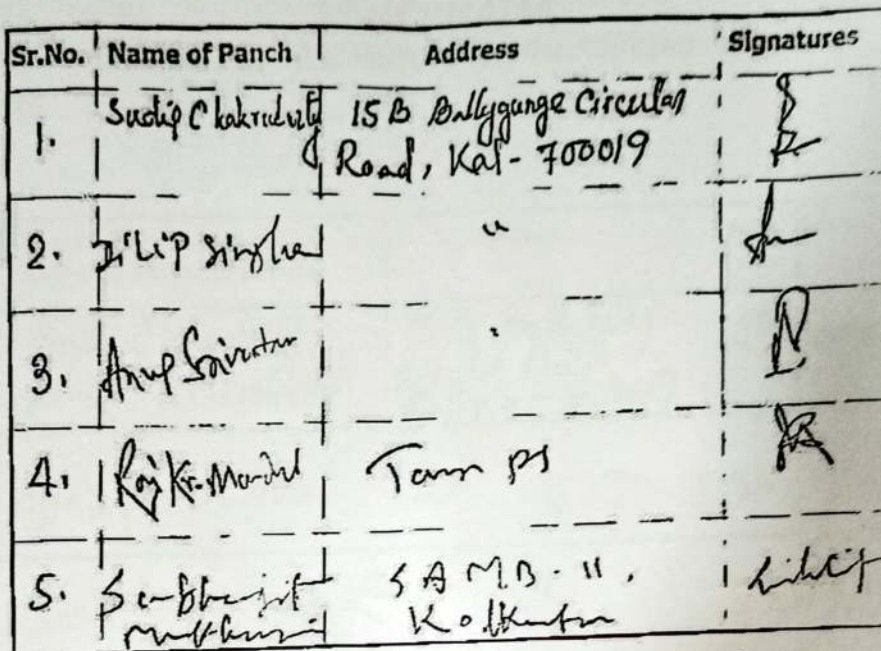 Sr.No. Name of Panch Address Signatures
1. Sudip Chakraborty 15 B Ballygunge Circular
Road, Kol- 700019
2. Dilip Singha "
3. Anup Srivastav "
4. Raj Kr. Mondal PS
5. Subhanjit SAMB-II,
Mukherjee Kolkata